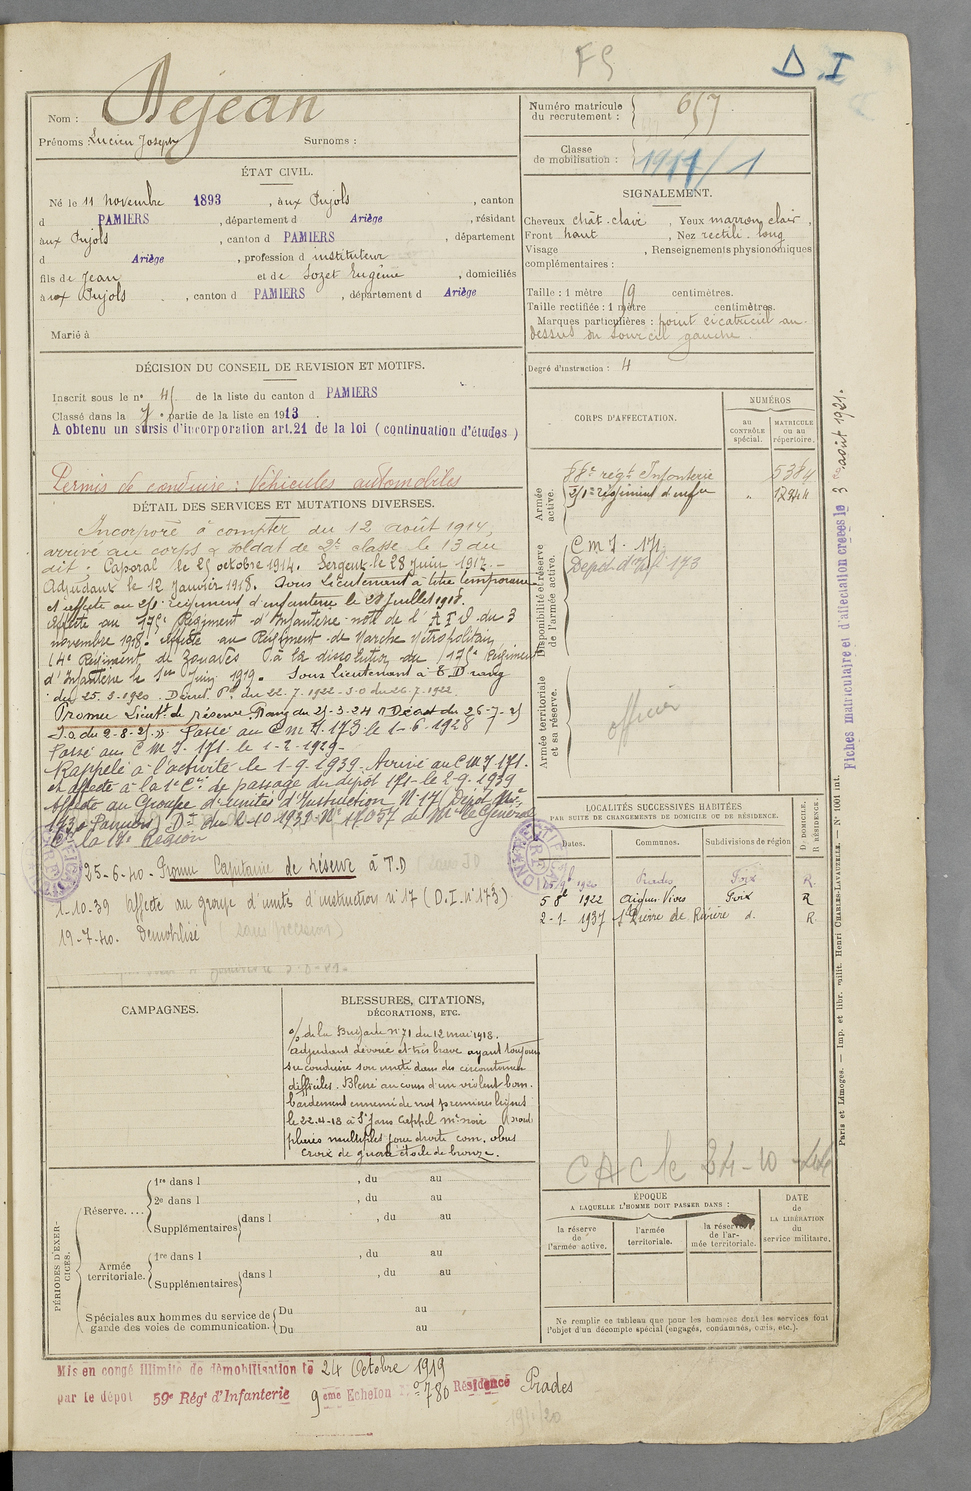 FS
D.I
Nom : Dejean
Prénoms : Lucien Joseph Surnoms :
Numéro matricule du recrutement : 657
Classe de mobilisation : 1911/1
ÉTAT CIVIL.
Né le 11 novembre 1893, aux Pujols, canton
d PAMIERS, département d Ariège, résidant
aux Pujols, canton d PAMIERS, département
d Ariège, profession d instituteur
fils de Jean et de Lozet Eugénie, domiciliés
aux Pujols, canton d PAMIERS, département d Ariège
Marié à
SIGNALEMENT.
Cheveux chât. clair, Yeux marron clair,
Front haut, Nez rectil. long
Visage , Renseignements physionomiques
complémentaires :
Taille : 1 mètre 69 centimètres.
Taille rectifiée : 1 mètre centimètres.
Marques particulières : point cicatriciel au
dessus du sourcil gauche.
Degré d'instruction : 4
DÉCISION DU CONSEIL DE REVISION ET MOTIFS.
Inscrit sous le n° 45 de la liste du canton d PAMIERS
Classé dans la 7e partie de la liste en 1913.
A obtenu un sursis d'incorporation art.21 de la loi (continuation d'études)
Permis de conduire : Véhicules automobiles
DÉTAIL DES SERVICES ET MUTATIONS DIVERSES.
Incorporé à compter du 12 août 1914,
arrivé au corps & soldat de 2e classe le 13 du
dit. Caporal le 25 octobre 1914. Sergent le 28 juin 1917.
Adjudant le 12 Janvier 1918. Sous Lieutenant à titre temporaire
et affecté au 2/1e régiment d'infanterie le 28 juillet 1918.
Affecté au 175e Régiment d'Infanterie note de l'A F O du 3
novembre 1918. Affecté au Régiment de Marche Métropolitain
(4e Régiment de Zouaves) à la dissolution du 175e Régiment
d'Infanterie le 1er Juin 1919. Sous lieutenant à T.D rang
du 25.3.1920. Décret Pl du 22.7.1922 J.O du 26.7.1922.
Promu Lieutt de réserve Rang du 25-3-24 Décret du 26-7-25
J.O du 2-8-25. Passé au C M I. 173 le 1-6-1928
Passé au C M I. 171 le 1-2-1929
Rappelé à l'activité le 1-9-1939 Arrivé au C M I 171.
et affecté à la 1e Cie de passage du dépôt 171 le 2-9-1939
Affecté au Groupe d'unités d'Instruction N° 17 (Dépôt Inf.
173 à Pamiers) Dn du 2-10-1939 N° 17.057 de Mr le Général
Ct la 17e Région
25-6-40. Promu Capitaine de réserve à T.D
1-10-39 affecté au groupe d'unités d'instruction n°17 (D.I. n°173)
19-7-40. Démobilisé (sans précision)
CORPS D'AFFECTATION.
NUMÉROS
au CONTRÔLE spécial.
MATRICULE ou au répertoire.
Armée active.
88e régt Infanterie 5384
2/1e régiment d'infie " 12344
Disponibilité et réserve de l'armée active.
C M I. 171
Dépôt d'Inf. 173
Armée territoriale et sa réserve.
officier
LOCALITÉS SUCCESSIVES HABITÉES
PAR SUITE DE CHANGEMENTS DE DOMICILE OU DE RÉSIDENCE.
Dates. Communes. Subdivisions de région
D. DOMICILE. R. RÉSIDENCE.
1920 Prades Foix R.
5 8b 1922 Aigues-Vives Foix R
2-1-1937 St Pierre de Rivière d. R.
CAMPAGNES.
BLESSURES, CITATIONS,
DÉCORATIONS, ETC.
o/ de la Brigade n° 71 du 12 mai 1918.
Adjudant dévoué et très brave ayant toujours
su conduire son unité dans des circonstances
difficiles. Blessé au cours d'un violent bom-
bardement ennemi de nos premières lignes
le 22-4-18 à St Jans Cappel Mt noir (Nord)
plaies multiples joue droite com. obus
Croix de guerre étoile de bronze.
C A C le 24-10-44
PÉRIODES D'EXERCICES.
Réserve....
1re dans l , du au
2e dans l , du au
Supplémentaires dans l , du au
Armée territoriale.
1re dans l , du au
Supplémentaires dans l , du au
Spéciales aux hommes du service de
garde des voies de communication.
Du au
Du au
ÉPOQUE
A LAQUELLE L'HOMME DOIT PASSER DANS :
la réserve de l'armée active.
l'armée territoriale.
la réserve de l'armée territoriale.
DATE de LA LIBÉRATION du service militaire.
Ne remplir ce tableau que pour les hommes dont les services font
l'objet d'un décompte spécial (engagés, condamnés, omis, etc.).
Mis en congé illimité de démobilisation le 24 Octobre 1919
par le dépôt 59e Régt d'Infanterie 9ème Echelon N° 780 Résidence Prades
19/1/20
Fiches matriculaire et d'affectation créées le 3 août 1921.
Paris et Limoges. — Imp. et libr. milit. Henri CHARLES-LAVAUZELLE. — N° 1001 int.